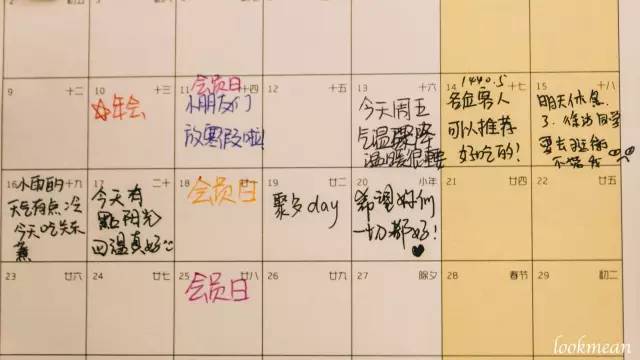 9 十二
10 十三
☆年会
11 十四
会员日
小朋友们
放寒假啦!
12 十五
13 十六
今天周五
气温骤降
温暖很重要
14 十七
1440.5
各位客人
可以推荐
好吃的!
15 十八
明天休息
要去
16
小雨的
天气有点冷
今天吃关东
煮
17 二十
今天有
點阳光
回温真好
18
会员日
19 廿二
聚夕day
20 小年
希望好们
一切都好!
21 廿四
22 廿五
23 廿六
24 廿七
25 廿八
会员日
26 廿九
27 除夕
28 春节
29 初二
lookmean